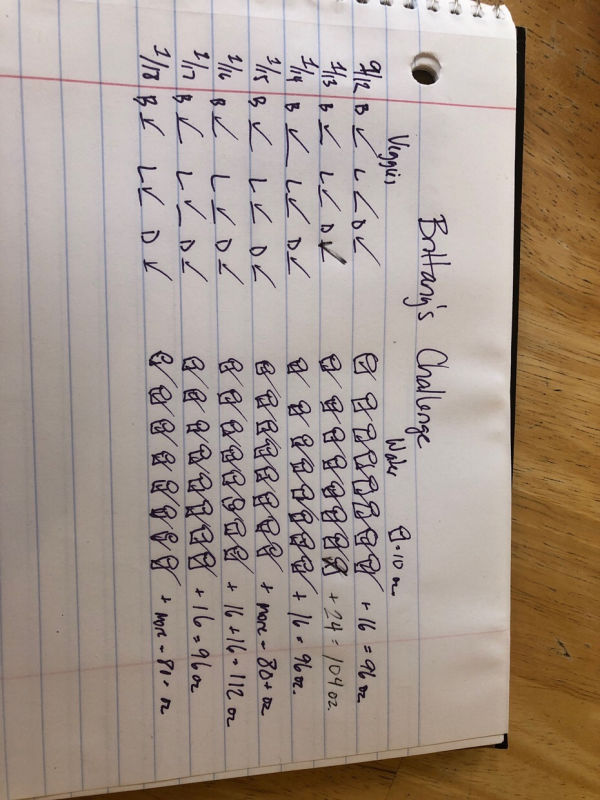 Brittany's Challenge
Veggies Water = 10 oz
9/12 B ✓ L ✓ D ✓ + 16 = 96 oz
1/13 B ✓ L ✓ D ✓ + 24 = 104 oz.
1/14 B ✓ L ✓ D ✓ + 16 = 96 oz.
1/15 B ✓ L ✓ D ✓ + more = 80+ oz
1/16 B ✓ L ✓ D ✓ + 16 + 16 = 112 oz
1/17 B ✓ L ✓ D ✓ + 16 = 96 oz
1/18 B ✓ L ✓ D ✓ + more = 80+ oz